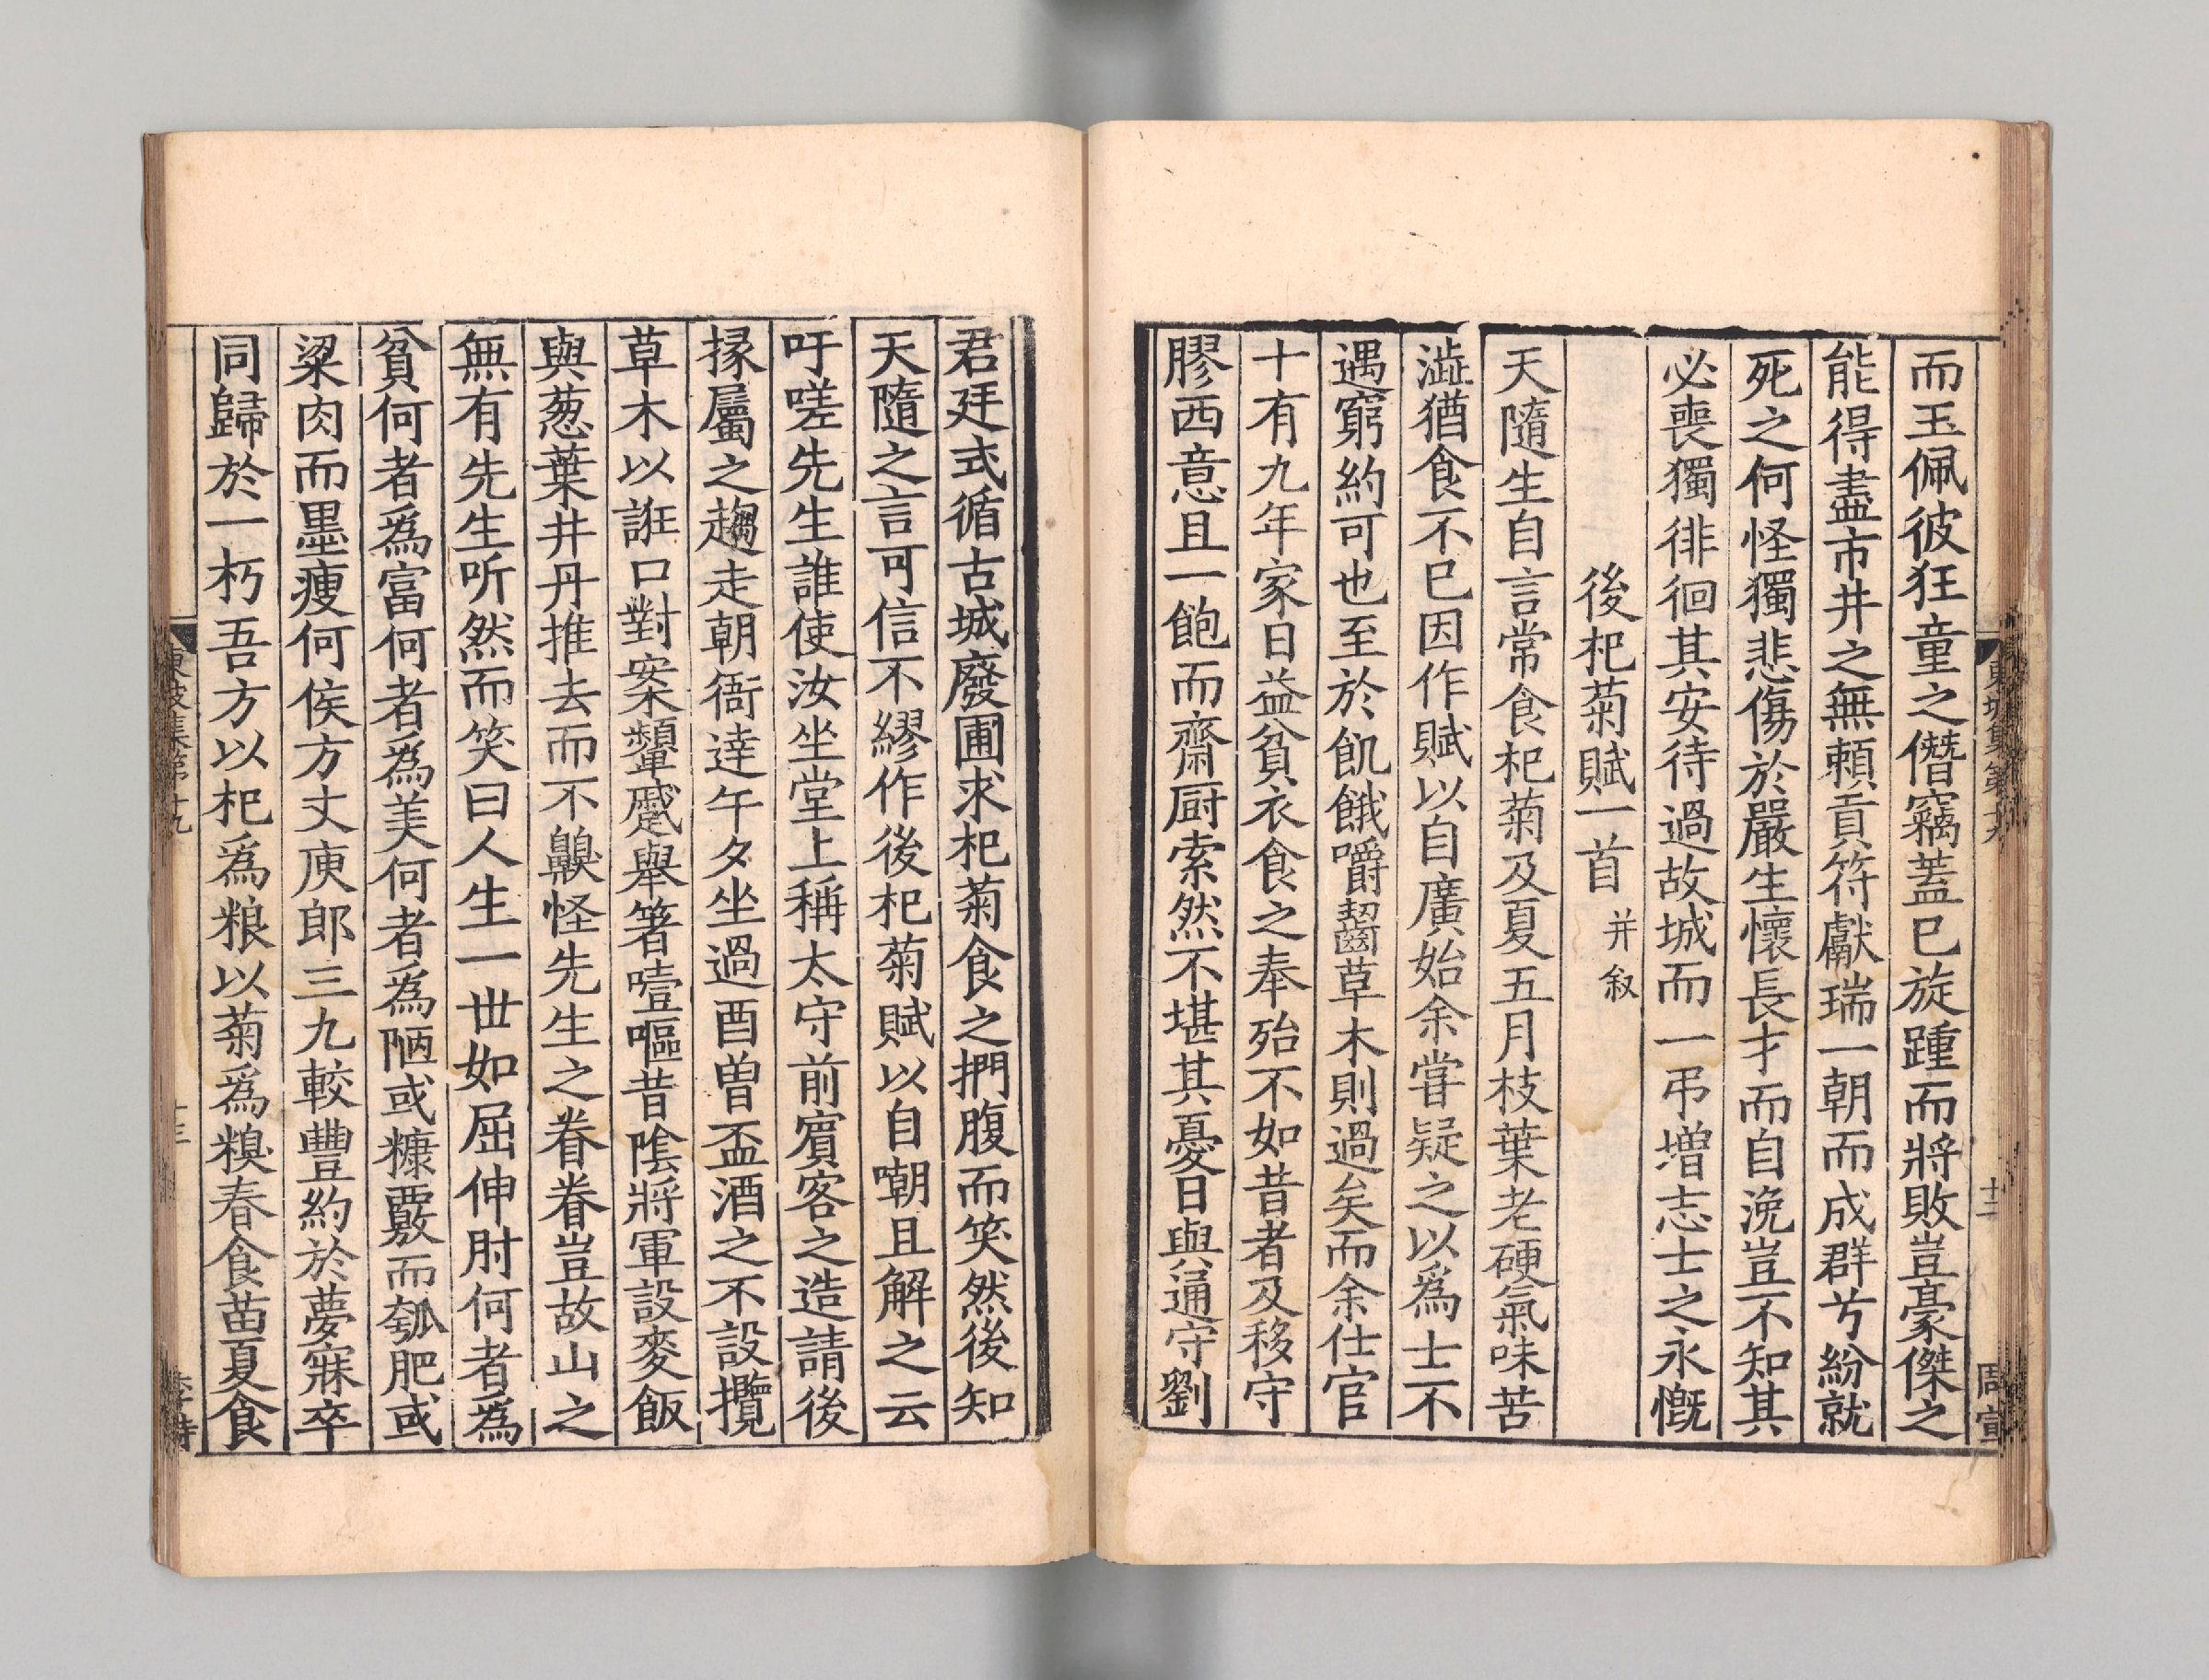 而玉佩彼狂童之僭竊蓋已旋踵而將敗豈豪傑之
能得盡市井之無頼貢符獻瑞一朝而成群兮紛就
死之何怪獨悲傷於嚴生懷長才而自浼豈不知其
必喪獨徘徊其安待過故城而一弔增志士之永慨
後杞菊賦一首 并叙
天隨生自言常食杞菊及夏五月枝葉老硬氣味苦
澁猶食不已因作賦以自廣始余嘗疑之以爲士不
遇窮約可也至於飢餓嚼齧草木則過矣而余仕官
十有九年家日益貧衣食之奉殆不如昔者及移守
膠西意且一飽而齋厨索然不堪其憂日與通守劉
君廷式循古城廢圃求杞菊食之捫腹而笑然後知
天隨之言可信不繆作後杞菊賦以自嘲且解之云
吁嗟先生誰使汝坐堂上稱太守前賔客之造請後
掾屬之趨走朝衙達午夕坐過酉曽盃酒之不設攬
草木以誑口對案顰蹙舉箸噎嘔昔陰將軍設麥飯
與葱葉井丹推去而不齅怪先生之眷眷豈故山之
無有先生听然而笑曰人生一丗如屈伸肘何者爲
貧何者爲富何者爲美何者爲陋或糠覈而瓠肥或
粱肉而墨瘦何侯方丈庾郎三九較豐約於夢寐卒
同歸於一朽吾方以杞爲粮以菊爲糗春食苗夏食
東坡集第十九
十二
周宣
東坡集第十九
十三